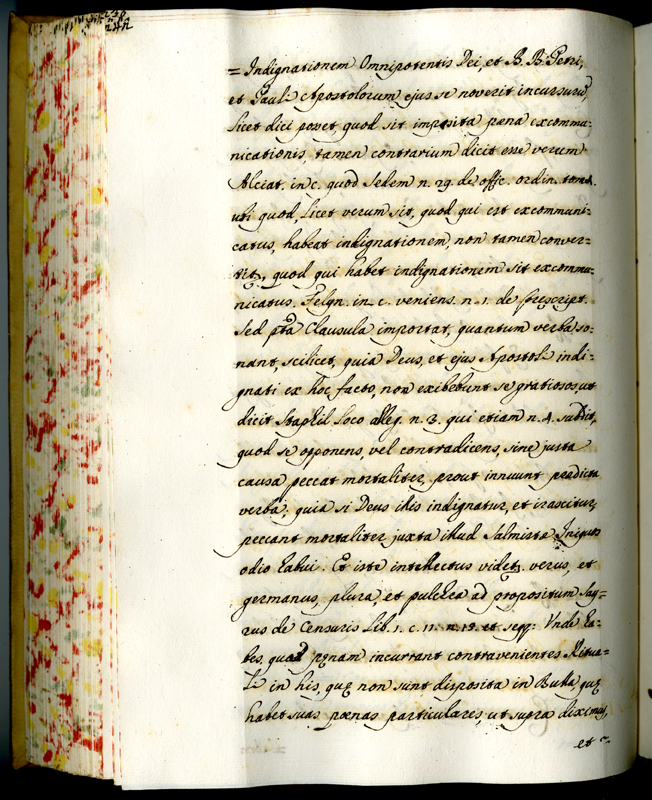 = Indignationem Omnipotentis Dei, et B. B. Petri,
et Pauli Apostolorum ejus se noverit incursurũ,
licet dici posset quod sit imposita pœna excommu-
nicationis, tamen contrarium dicit esse verum
Alciat. in c. quod sedem n. 29. de offic. ordin.
ubi quod, licet verum sit, quod qui est excommuni-
catus, habeat indignationem, non tamen conver-
titr, quod qui habet indignationem sit excommu-
nicatus. Felyn. in c. veniens. n. 1. de prescript.
Sed pta Clausula importat, quantum verba so-
nant, scilicet, quia Deus, et ejus Apostoli indi-
gnati ex hoc facto, non exibebunt se gratiosos, ut
dicit Staphil loco alleg. n. 3. qui etiam n. 4. subdit,
quod se opponens, vel contradicens, sine justa
causa peccat mortaliter, prout innuunt predicta
verba, quia si Deus illis indignatur, et irascitur,
peccant mortaliter juxta illud Salmista Iniquos
odio habui. Et iste intellectus videtr. verus, et
germanus, plura, et pulchra ad propositum Say-
rus de Censuris Lib. 1. c. 11. n. 19. et seqq: Unde ha-
bes, quod pęnam incurrant contravenientes Ritua-
li in his, quę non sunt disposita in Bulla, quę
habet suas pœnas particulares, ut supra diximus,
et